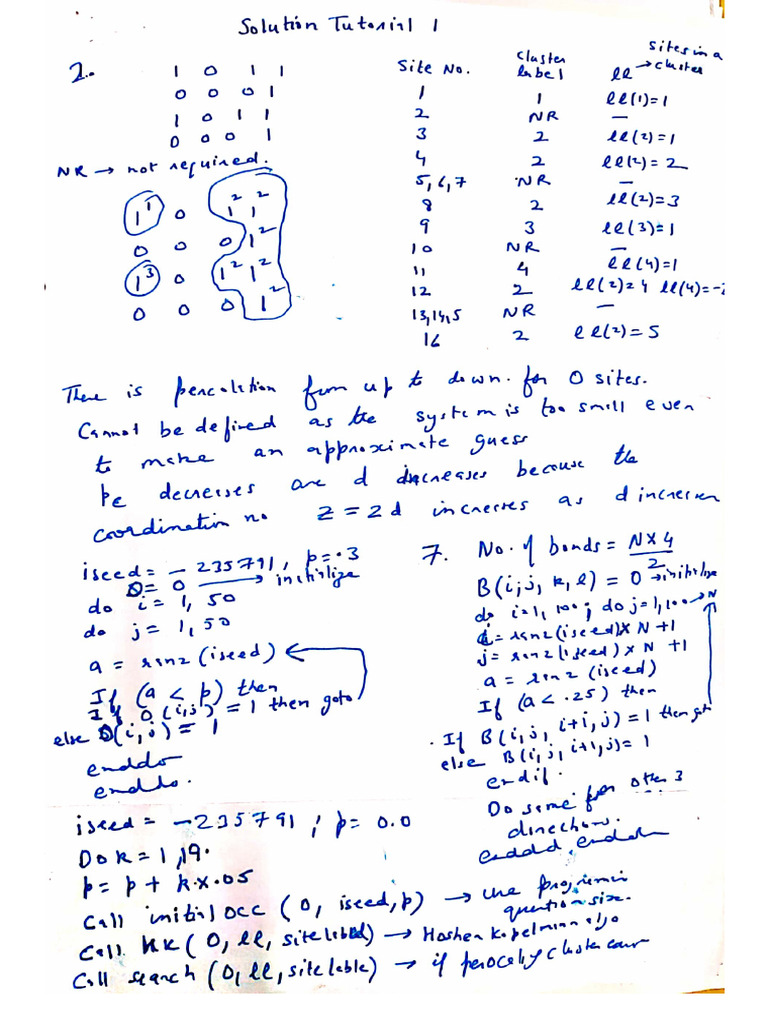 Solution Tutorial 1
2. 1 0 1 1
0 0 0 1
1 0 1 1
0 0 0 1
NR → not required.
1^1 0 1^2 1^2
0 0 0 1^2
1^3 0 1^2 1^2
0 0 0 1^2
Site No. cluster label ll → sites in a cluster
1 1 ll(1)=1
2 NR —
3 2 ll(2)=1
4 2 ll(2)=2
5,6,7 NR —
8 2 ll(2)=3
9 3 ll(3)=1
10 NR —
11 4 ll(4)=1
12 2 ll(2)=4 ll(4)=-2
13,14,5 NR —
16 2 ll(2)=5
There is percolation from up to down. for 0 sites.
Cannot be defined as the system is too small even
to make an approximate guess
pc decreses as d increases because the
coordination no z = 2d increses as d increses
iseed = -235791, p=.3
O= 0 → initilize
do i=1, 50
do j=1,50
a = ran2(iseed)
If (a < p) then
If O(i,j) = 1 then goto
else O(i,j) = 1
enddo
enddo.
7. No. of bonds = N×4/2
B(i,j, k,l) = 0 → initilize
do i=1, 100; do j=1,100 → N
i = ran2(iseed)×N+1
j = ran2(iseed)×N+1
a = ran2(iseed)
If (a < .25) then
If B(i,j, i+1,j)=1 then goto
else B(i,j,i+1,j)=1
endif.
Do same for other 3
directions.
enddo, enddo
iseed = -235791; p= 0.0
Do k=1,19.
p= p + k×.05
Call initial occ (O, iseed,p) → the prog in
question six
Call HK (O, ll, sitelabel) → Hoshen Kopelman algo
Call search (O, ll, sitelable) → if